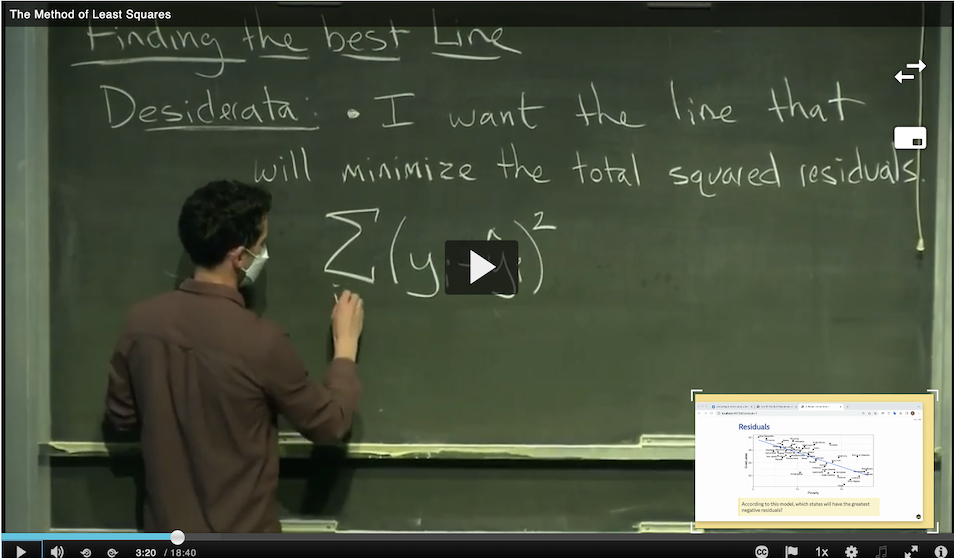 The Method of Least Squares
Finding the best Line
Desiderata: • I want the line that
will minimize the total squared residuals.
∑ (yᵢ - ŷᵢ)²
i
Residuals
Poverty
According to this model, which states will have the greatest
negative residuals?
3:20 / 18:40
CC
1x